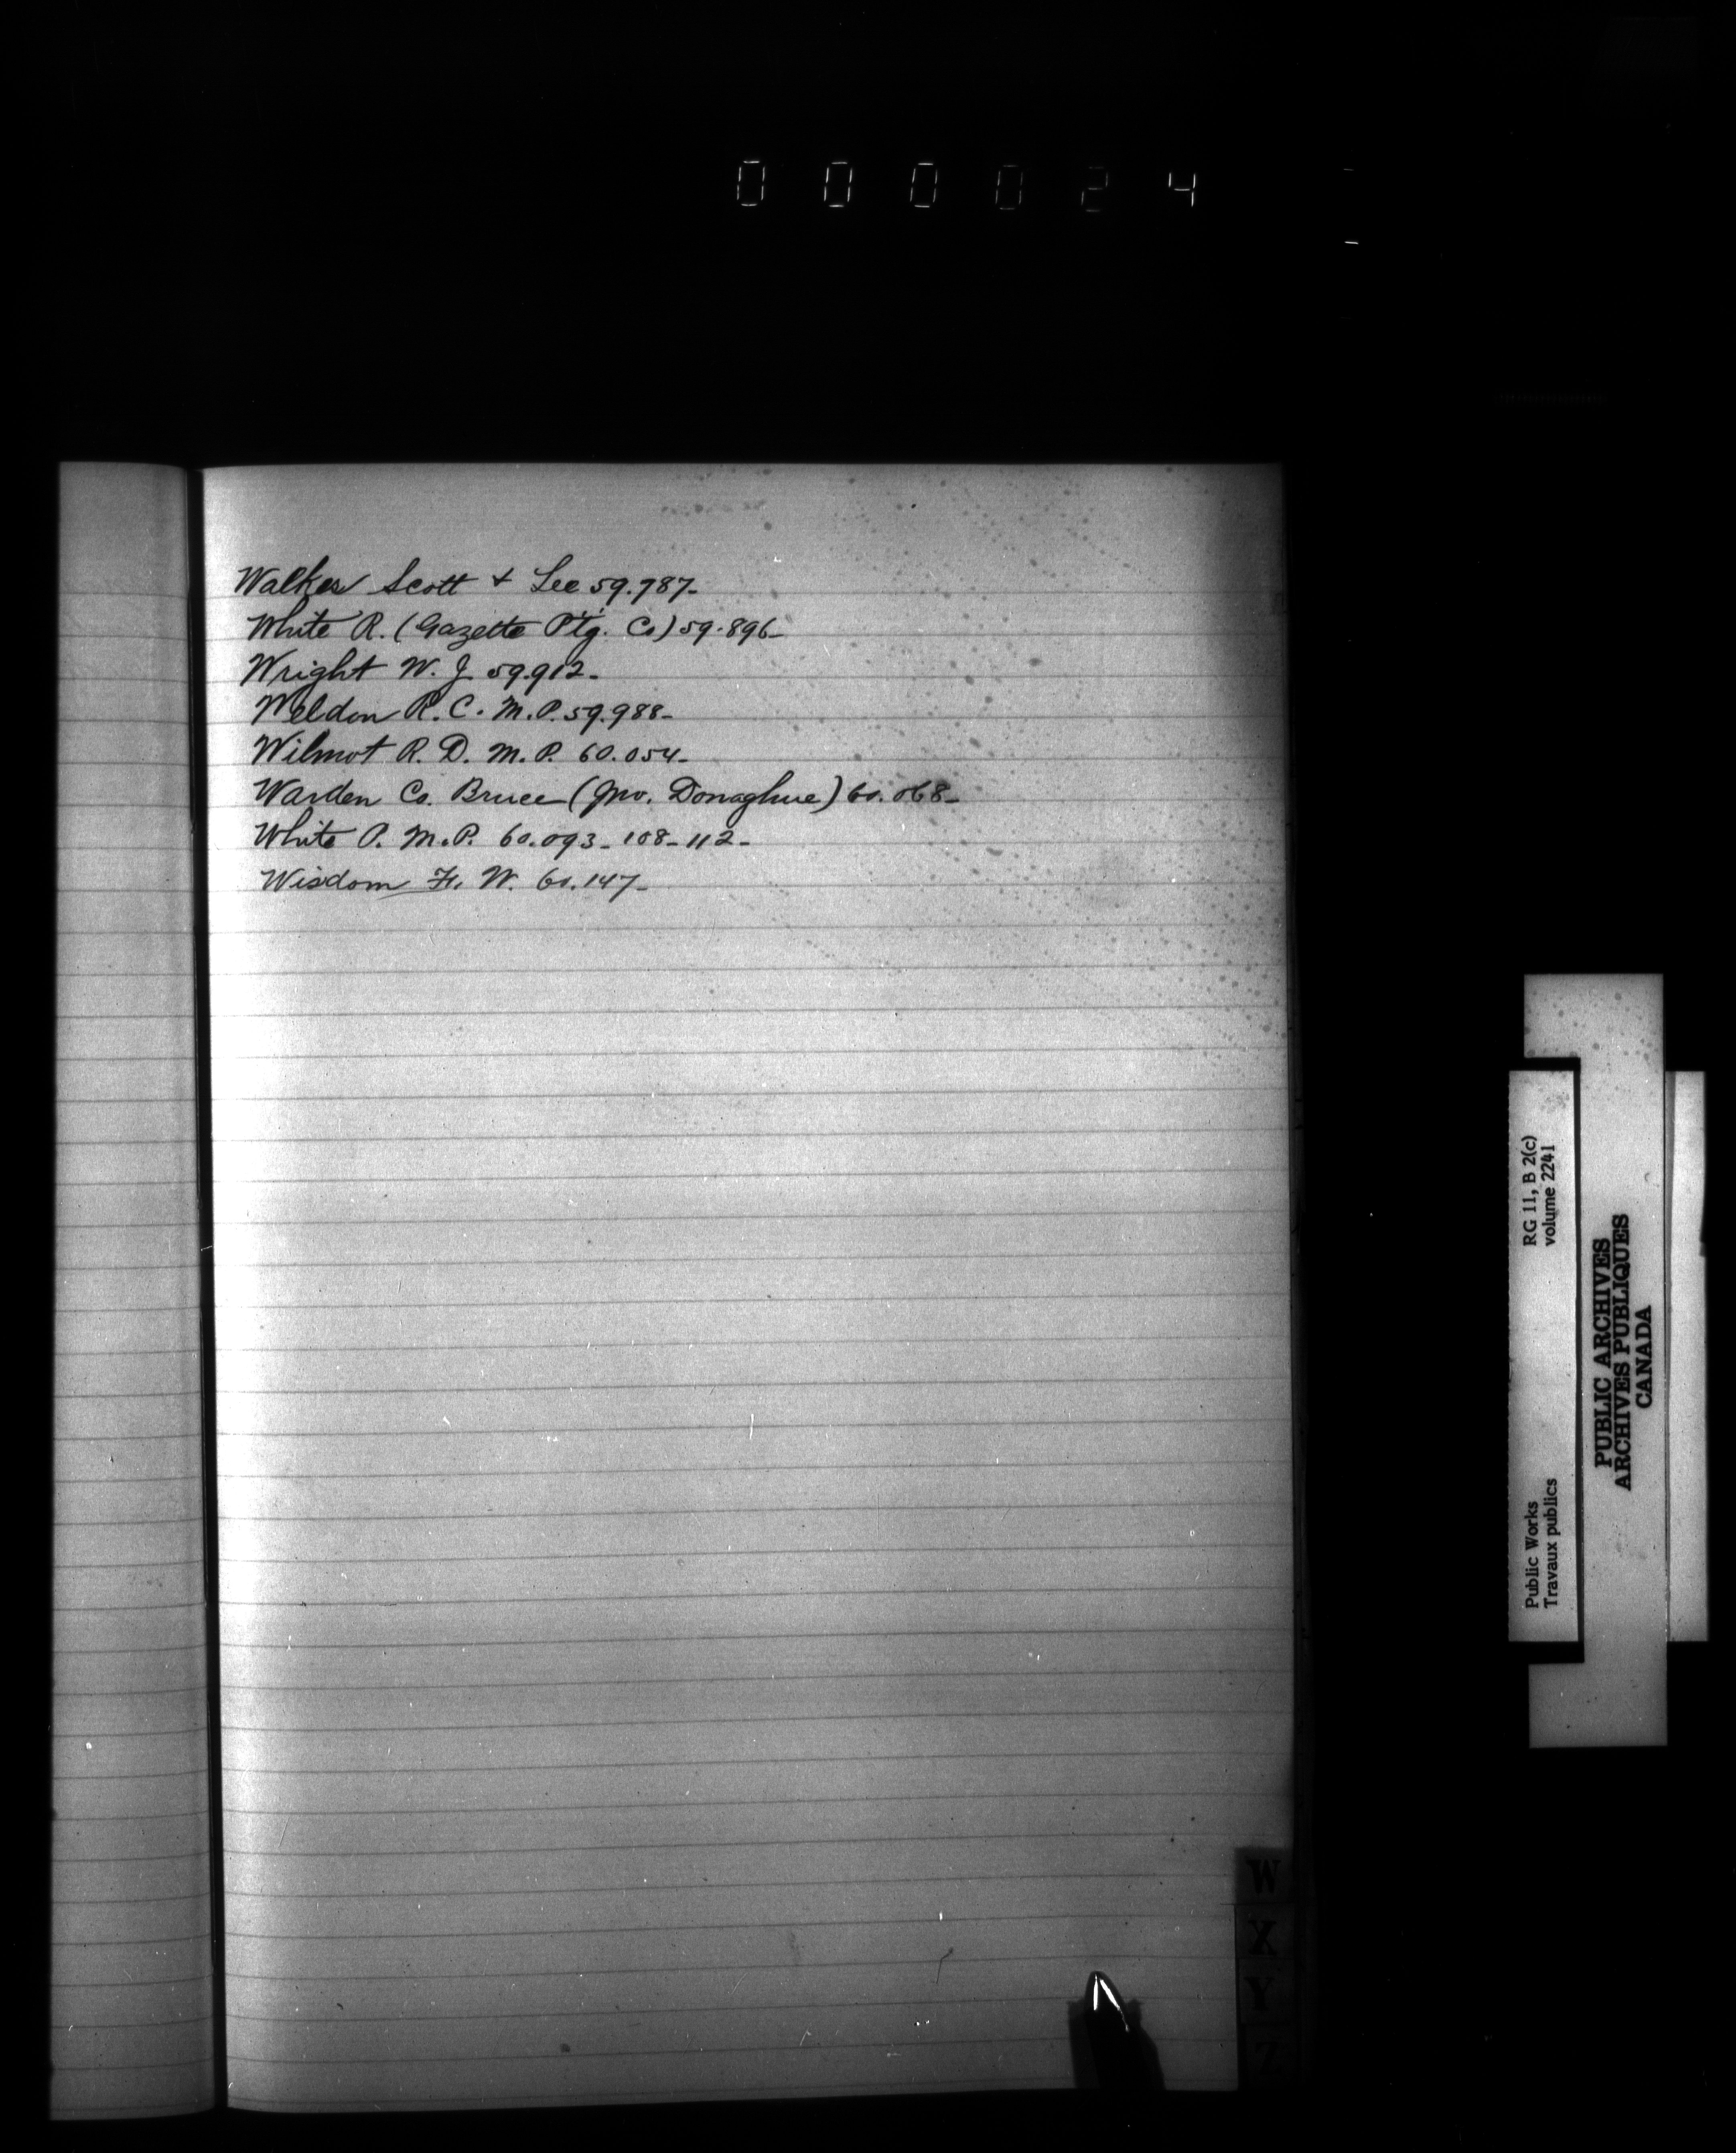 000024
Walker Scott & Lee 59.787-
White R. (Gazette Ptg. Co) 59.896-
Wright W. J. 59.912-
Weldon R. C. M.P. 59.988-
Wilmot R. D. M.P. 60.054-
Warden Co. Bruce (Jno. Donaghue) 60.068-
White P. M.P. 60.093-108-112-
Wisdom F. W. 60.147-
W
X
Y
Z
Public Works RG 11, B 2(c)
Travaux publics volume 2241
PUBLIC ARCHIVES
ARCHIVES PUBLIQUES
CANADA